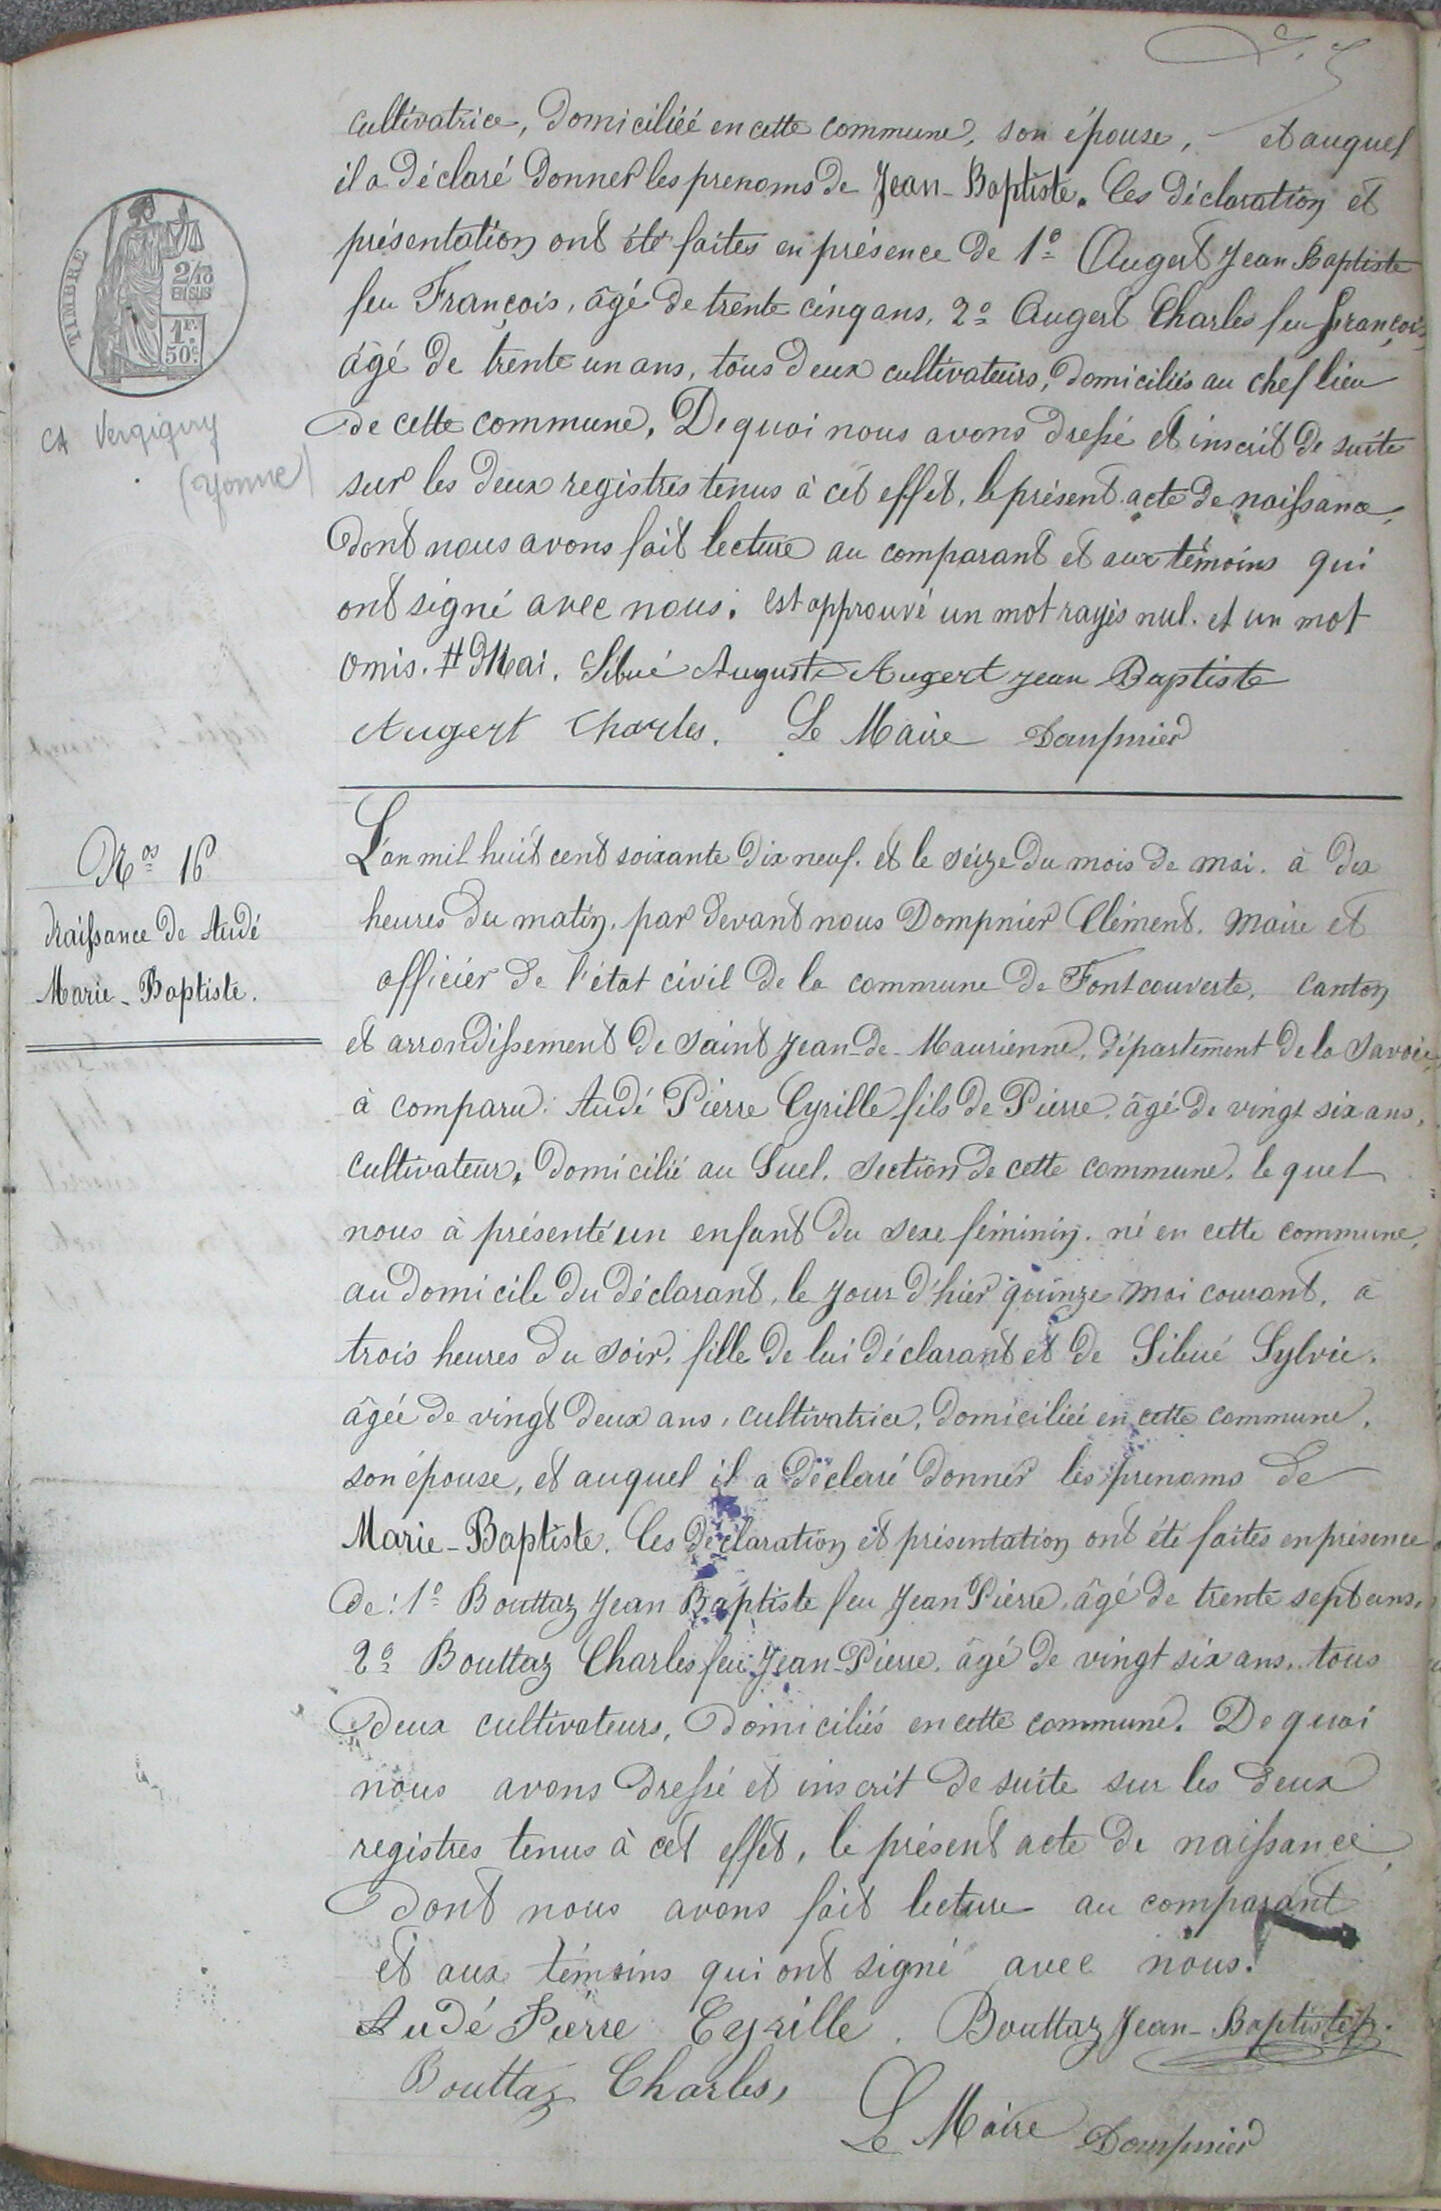 cultivatrice, domiciliée en cette commune, son épouse, - et auquel
il a déclaré donner les prenoms de Jean-Baptiste. Ces déclaration et
présentation ont été faites en présence de 1º Augert Jean Baptiste
feu François, âgé de trente cinq ans, 2º Augert Charles feu François,
âgé de trente un ans, tous deux cultivateurs, domiciliés au chef lieu
de cette commune. De quoi nous avons dressé et inscrit de suite
sur les deux registres tenus à cet effet, le présent acte de naissance,
dont nous avons fait lecture au comparant et aux témoins qui
ont signé avec nous. Est approuvé un mot rayés nul. et un mot
omis. # Mai. Sibué Auguste Augert Jean Baptiste
Augert Charles. Le Maire Dompnier
TIMBRE
2/10
EN SUS
1F.
50c.
CA Vergigny
(Yonne)
Nos 16
Naissance de Audé
Marie-Baptiste.
L'an mil huit cent soixante dix neuf. et le seize du mois de mai. à dix
heures du matin. par devant nous Dompnier Clément. Maire et
officier de l'état civil de la commune de Fontcouverte, canton
et arrondissement de Saint Jean-de-Maurienne, département de la Savoie,
à comparu: Audé Pierre Cyrille fils de Pierre, âgé de vingt six ans,
cultivateur, domicilié au Suel. section de cette commune, le quel
nous à présenté un enfant du sexe féminin. né en cette commune,
au domicile du déclarant, le jour d'hier quinze mai courant, à
trois heures du soir, fille de lui déclarant et de Sibué Sylvie.
âgée de vingt deux ans, cultivatrice, domiciliée en cette commune,
son épouse, et auquel il a déclaré donner les prenoms de
Marie-Baptiste. Ces déclaration et présentation ont été faites en présence
de: 1º Bouttaz Jean Baptiste feu Jean Pierre, âgé de trente sept ans,
2º Bouttaz Charles feu Jean-Pierre. âgé de vingt six ans, tous
deux cultivateurs, domiciliés en cette commune. De quoi
nous avons dressé et inscrit de suite sur les deux
registres tenus à cet effet, le présent acte de naissance,
dont nous avons fait lecture au comparant
et aux témoins qui ont signé avec nous.
Audé Pierre Cyrille. Bouttaz Jean-Baptiste
Bouttaz Charles,
Le Maire Dompnier